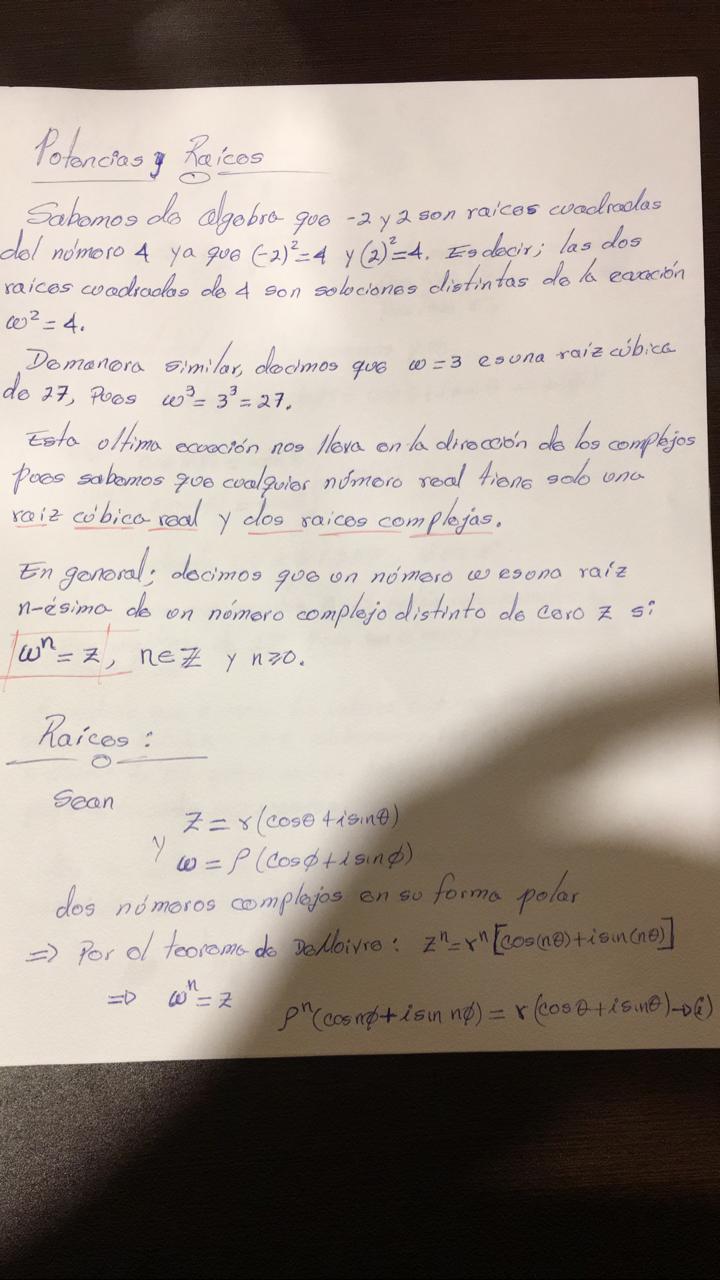 Potencias y Raíces
Sabemos de algebra que -2 y 2 son raices cuadradas
del número 4 ya que (-2)²=4 y (2)²=4. Es decir; las dos
raíces cuadradas de 4 son soluciones distintas de la ecuación
ω² = 4.
De manera similar, decimos que ω = 3 es una raíz cúbica
de 27, Pues ω³ = 3³ = 27.
Esta ultima ecuación nos lleva en la dirección de los complejos
pues sabemos que cualquier número real tiene solo una
raiz cúbica real y dos raices complejas.
En general; decimos que un número ω es una raíz
n-ésima de un número complejo distinto de cero z si
ωⁿ = z, n∈ℤ y n≥0.
Raíces:
Sean
z = r(cosθ + i sinθ)
y
ω = ρ(cosφ + i sinφ)
dos números complejos en su forma polar
=> Por el teorema de DeMoivre: zⁿ = rⁿ[cos(nθ) + i sin(nθ)]
=> ωⁿ = z
ρⁿ(cos nφ + i sin nφ) = r(cosθ + i sinθ) → (i)